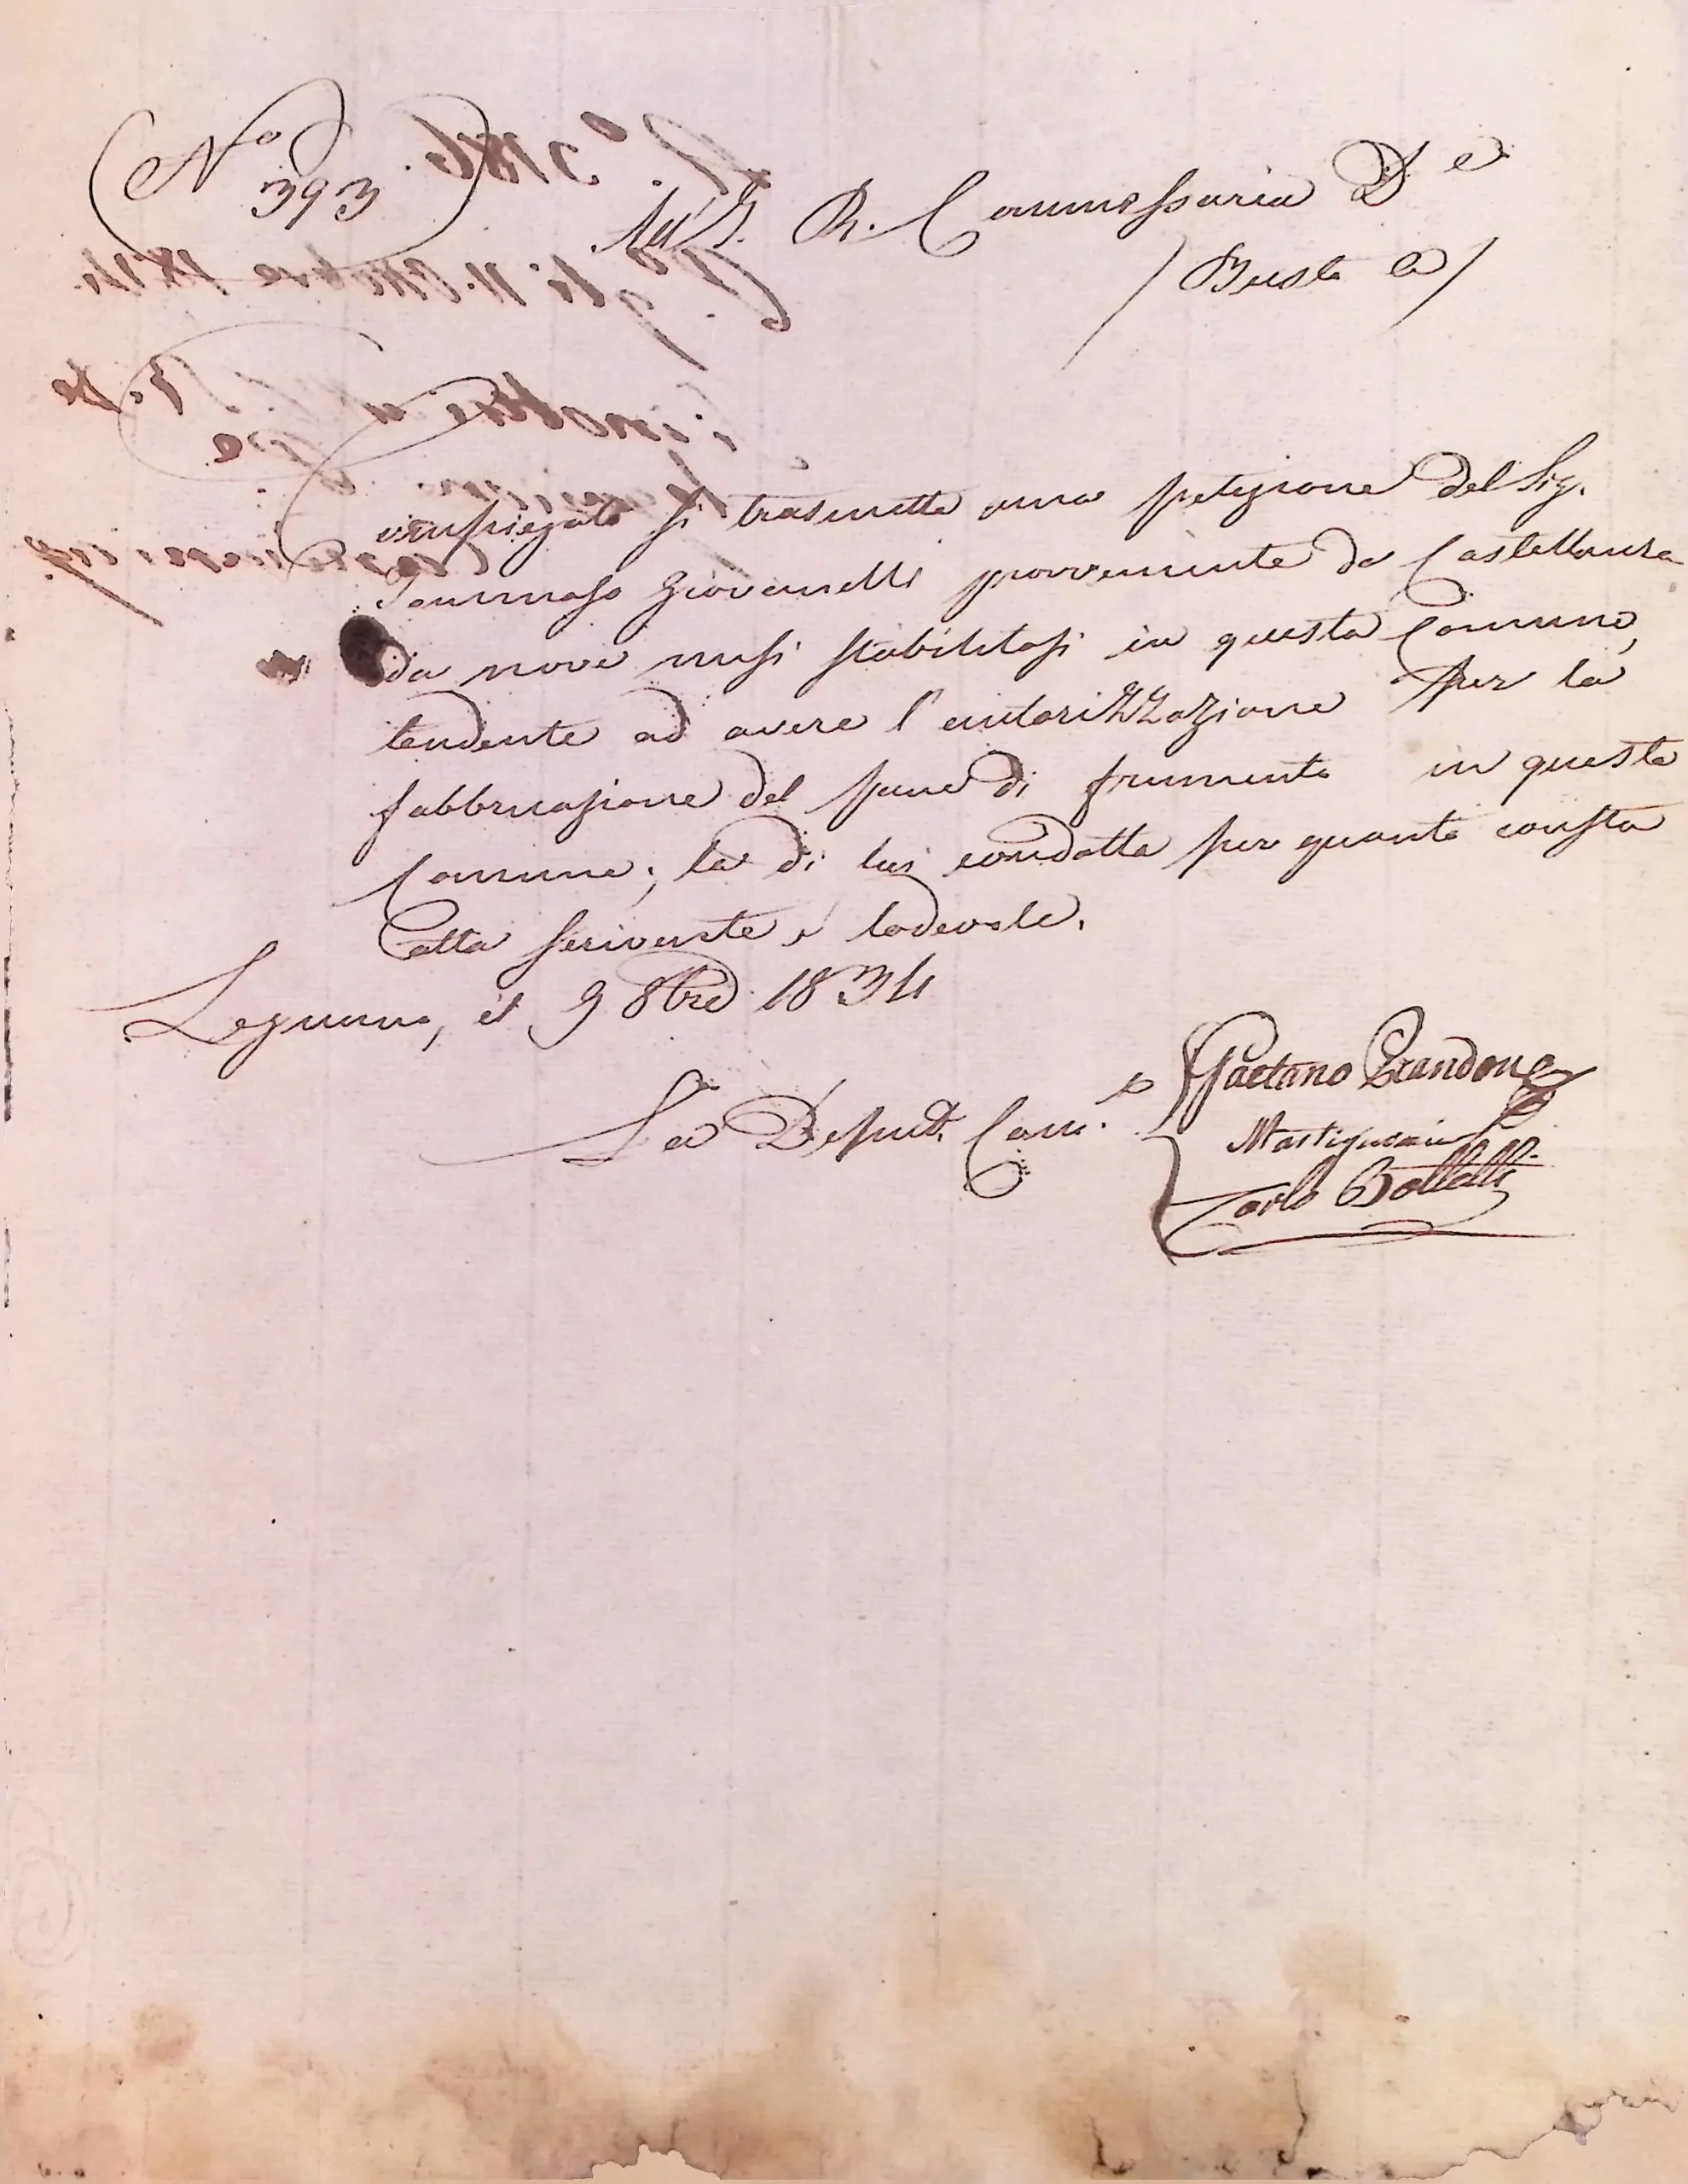 N.o 393
All'I. R. Commissaria D.e
/ Busto A /
Compiegato si trasmette una petizione del Sig.
Tommaso Giovanelli provveniente da Castellanza
da nove mesi stabilitosi in questa Comune,
tendente ad avere l'autorizzazione per la
fabbricazione del pane di frumento in questa
Comune; la di lui condotta per quanto consta
alla scrivente è lodevole.
Legnano, il 9 8bre 1834
La Deput. Com.e
Gaetano Prandoni
Carlo Bolletti